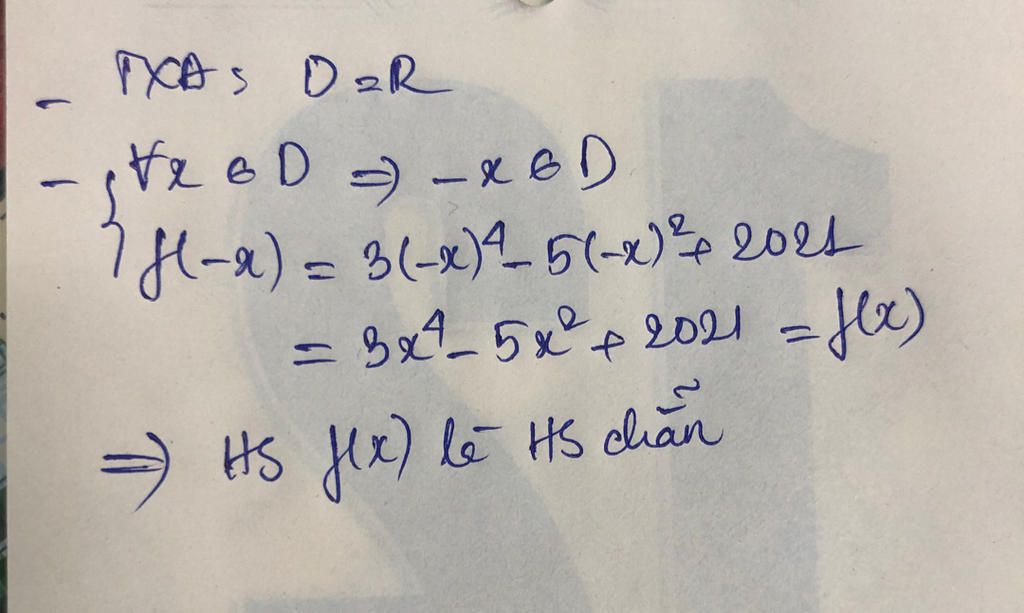 - TXĐ: D = R
- { ∀x ∈ D ⇒ -x ∈ D
f(-x) = 3(-x)⁴ - 5(-x)² + 2021
= 3x⁴ - 5x² + 2021 = f(x)
⇒ HS f(x) là HS chẵn